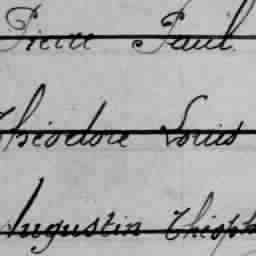 Pierre Paul
Théodore Louis
Augustin